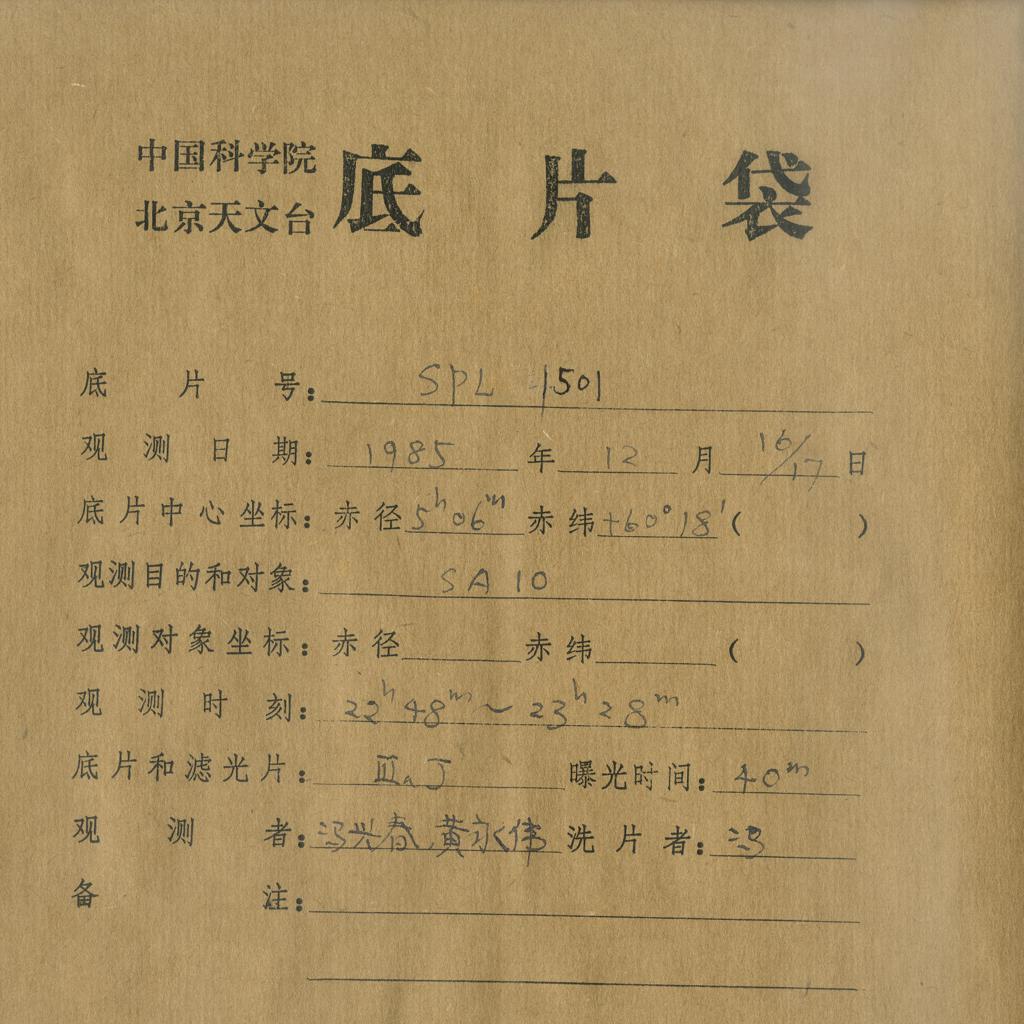 中国科学院
北京天文台
底片袋
底片号：SPL 1501
观测日期：1985年12月16/17日
底片中心坐标：赤径5ʰ06ᵐ赤纬+60°18′（ ）
观测目的和对象：SA10
观测对象坐标：赤径 赤纬 （ ）
观测时刻：22ʰ48ᵐ～23ʰ28ᵐ
底片和滤光片：ⅢaJ 曝光时间：40ᵐ
观测者：冯兴春 黄永伟 洗片者：冯
备注：